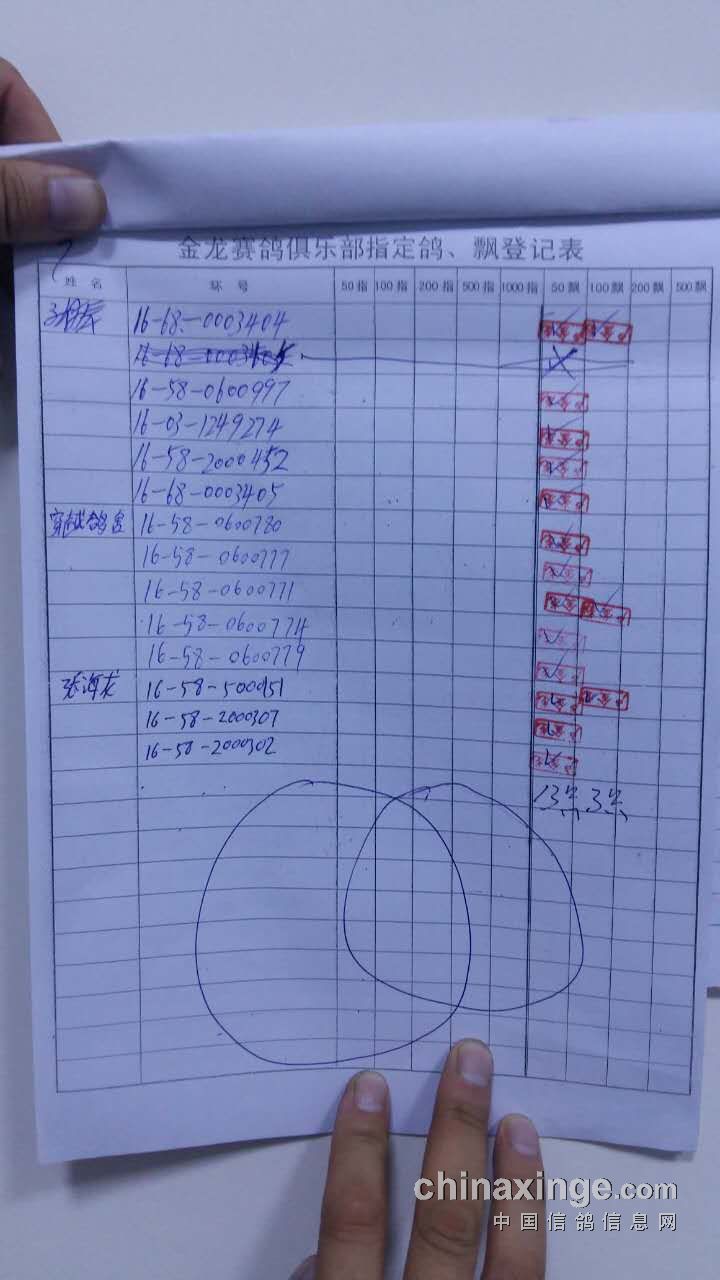 7
金龙赛鸽俱乐部指定鸽、飘登记表
姓 名 环 号 50指 100指 200指 500指 1000指 50飘 100飘 200飘 500飘
16-68-0003404
16-58-0600997
16-03-1249274
16-58-2000452
16-68-0003405
16-58-0600780
16-58-0600777
16-58-0600771
16-58-0600774
16-58-0600779
16-58-2000307
16-58-2000302
chinaxinge.com
中国信鸽信息网